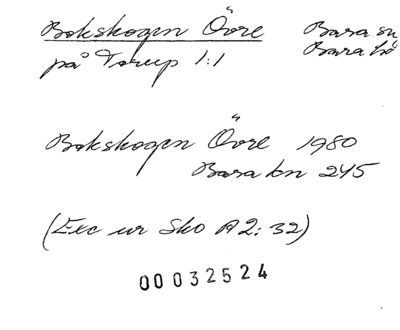 Bokskogen Övre Bara
på Torup 1:1 Bara
Bokskogen Övre 1980
Bara kn 245
(Exc ur Sko A2: 32)
00032524